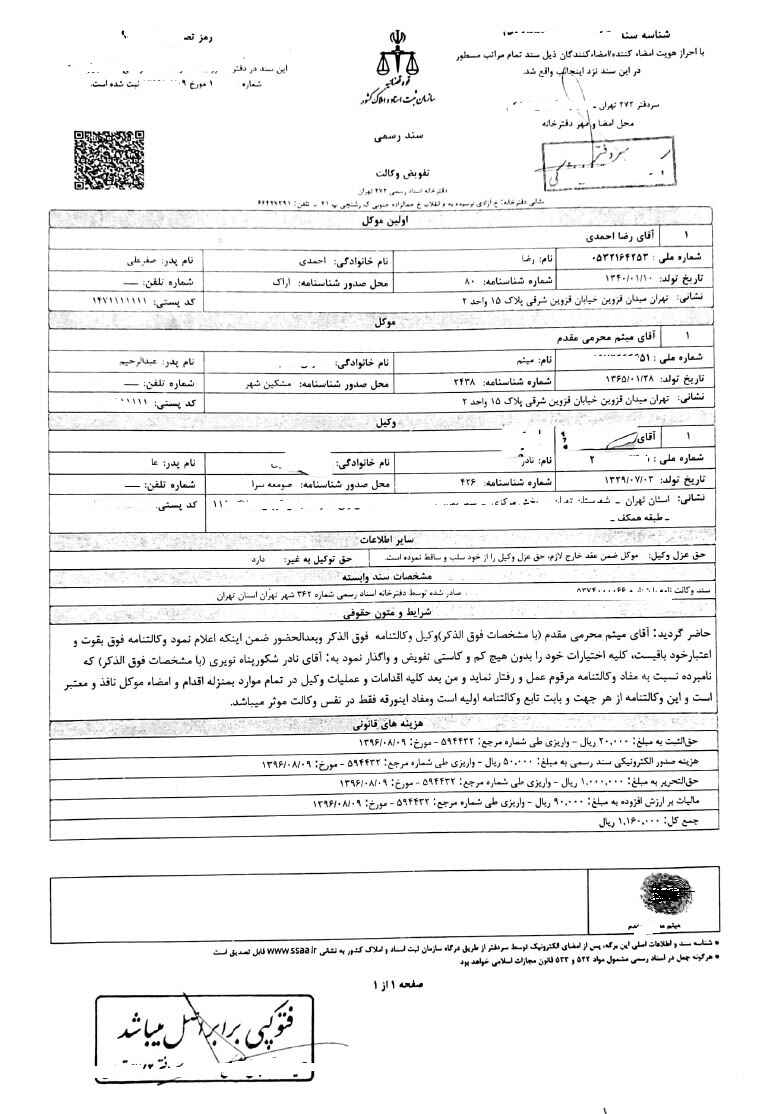 شناسه سند
رمز تص
با احراز هویت امضاء کننده/امضاءکنندگان ذیل سند تمام مراتب مسطور
در این سند نزد اینجانب واقع شد.
این سند در دفتر
شماره ۱ مورخ ثبت شده است.
سردفتر ۲۷۲ تهران
محل امضا و مهر دفترخانه
سردفتر
قوه قضاییه
سازمان ثبت اسناد و املاک کشور
سند رسمی
تفویض وکالت
دفترخانه اسناد رسمی ۲۷۲ تهران
نشانی دفترخانه: خ آزادی نرسیده به م انقلاب خ جمالزاده جنوبی ک رشتچی پ ۲۱ - تلفن: ۶۶۴۲۷۲۹۱
اولین موکل
۱ آقای رضا احمدی
شماره ملی: ۰۵۳۲۱۶۴۲۵۳ نام: رضا نام خانوادگی: احمدی نام پدر: صفرعلی
تاریخ تولد: ۱۳۴۰/۰۱/۱۰ شماره شناسنامه: ۸۰ محل صدور شناسنامه: اراک شماره تلفن: ---
نشانی: تهران میدان قزوین خیابان قزوین شرقی پلاک ۱۵ واحد ۲ کد پستی: ۱۴۷۱۱۱۱۱۱۱
موکل
۱ آقای میثم محرمی مقدم
شماره ملی: ۰۵۱ نام: میثم نام خانوادگی: نام پدر: عبدالرحیم
تاریخ تولد: ۱۳۶۵/۰۱/۲۸ شماره شناسنامه: ۲۴۳۸ محل صدور شناسنامه: مشکین شهر شماره تلفن: ---
نشانی: تهران میدان قزوین خیابان قزوین شرقی پلاک ۱۵ واحد ۲ کد پستی: ۱۱۱۱۱
وکیل
۱ آقای
شماره ملی: ۲ نام: نادر نام خانوادگی: نام پدر:
تاریخ تولد: ۱۳۲۹/۰۷/۰۳ شماره شناسنامه: ۴۲۶ محل صدور شناسنامه: صومعه سرا شماره تلفن: ---
نشانی: استان تهران - شهرستان تهران - بخش مرکزی - کد پستی:
- طبقه همکف -
سایر اطلاعات
حق عزل وکیل: موکل ضمن عقد خارج لازم، حق عزل وکیل را از خود سلب و ساقط نموده است. حق توکیل به غیر: دارد
مشخصات سند وابسته
سند وکالت نامه با شناسه صادر شده توسط دفترخانه اسناد رسمی شماره ۳۶۲ شهر تهران استان تهران
شرایط و متون حقوقی
حاضر گردید: آقای میثم محرمی مقدم (با مشخصات فوق الذکر)وکیل وکالتنامه فوق الذکر وبعدالحضور ضمن اینکه اعلام نمود وکالتنامه فوق بقوت و
اعتبارخود باقیست، کلیه اختیارات خود را بدون هیچ کم و کاستی تفویض و واگذار نمود به: آقای نادر شکورپناه نویری (با مشخصات فوق الذکر) که
نامبرده نسبت به مفاد وکالتنامه مرقوم عمل و رفتار نماید و من بعد کلیه اقدامات و عملیات وکیل در تمام موارد بمنزله اقدام و امضاء موکل نافذ و معتبر
است و این وکالتنامه از هر جهت و بابت تابع وکالتنامه اولیه است ومفاد اینورقه فقط در نفس وکالت موثر میباشد.
هزینه های قانونی
حق الثبت به مبلغ: ۲۰,۰۰۰ ریال - واریزی طی شماره مرجع: ۵۹۴۴۳۲ - مورخ: ۱۳۹۶/۰۸/۰۹
هزینه صدور الکترونیکی سند رسمی به مبلغ: ۵۰,۰۰۰ ریال - واریزی طی شماره مرجع: ۵۹۴۴۳۲ - مورخ: ۱۳۹۶/۰۸/۰۹
حق التحریر به مبلغ: ۱,۰۰۰,۰۰۰ ریال - واریزی طی شماره مرجع: ۵۹۴۴۳۲ - مورخ: ۱۳۹۶/۰۸/۰۹
مالیات بر ارزش افزوده به مبلغ: ۹۰,۰۰۰ ریال - واریزی طی شماره مرجع: ۵۹۴۴۳۲ - مورخ: ۱۳۹۶/۰۸/۰۹
جمع کل: ۱,۱۶۰,۰۰۰ ریال
* شناسه سند و اطلاعات اصلی این برگه، پس از امضای الکترونیک توسط سردفتر از طریق درگاه سازمان ثبت اسناد و املاک کشور به نشانی www.ssaa.ir قابل تصدیق است
* هرگونه جعل در اسناد رسمی مشمول مواد ۵۲۲ و ۵۳۲ قانون مجازات اسلامی خواهد بود.
صفحه ۱ از ۱
فتوکپی برابر اصل میباشد